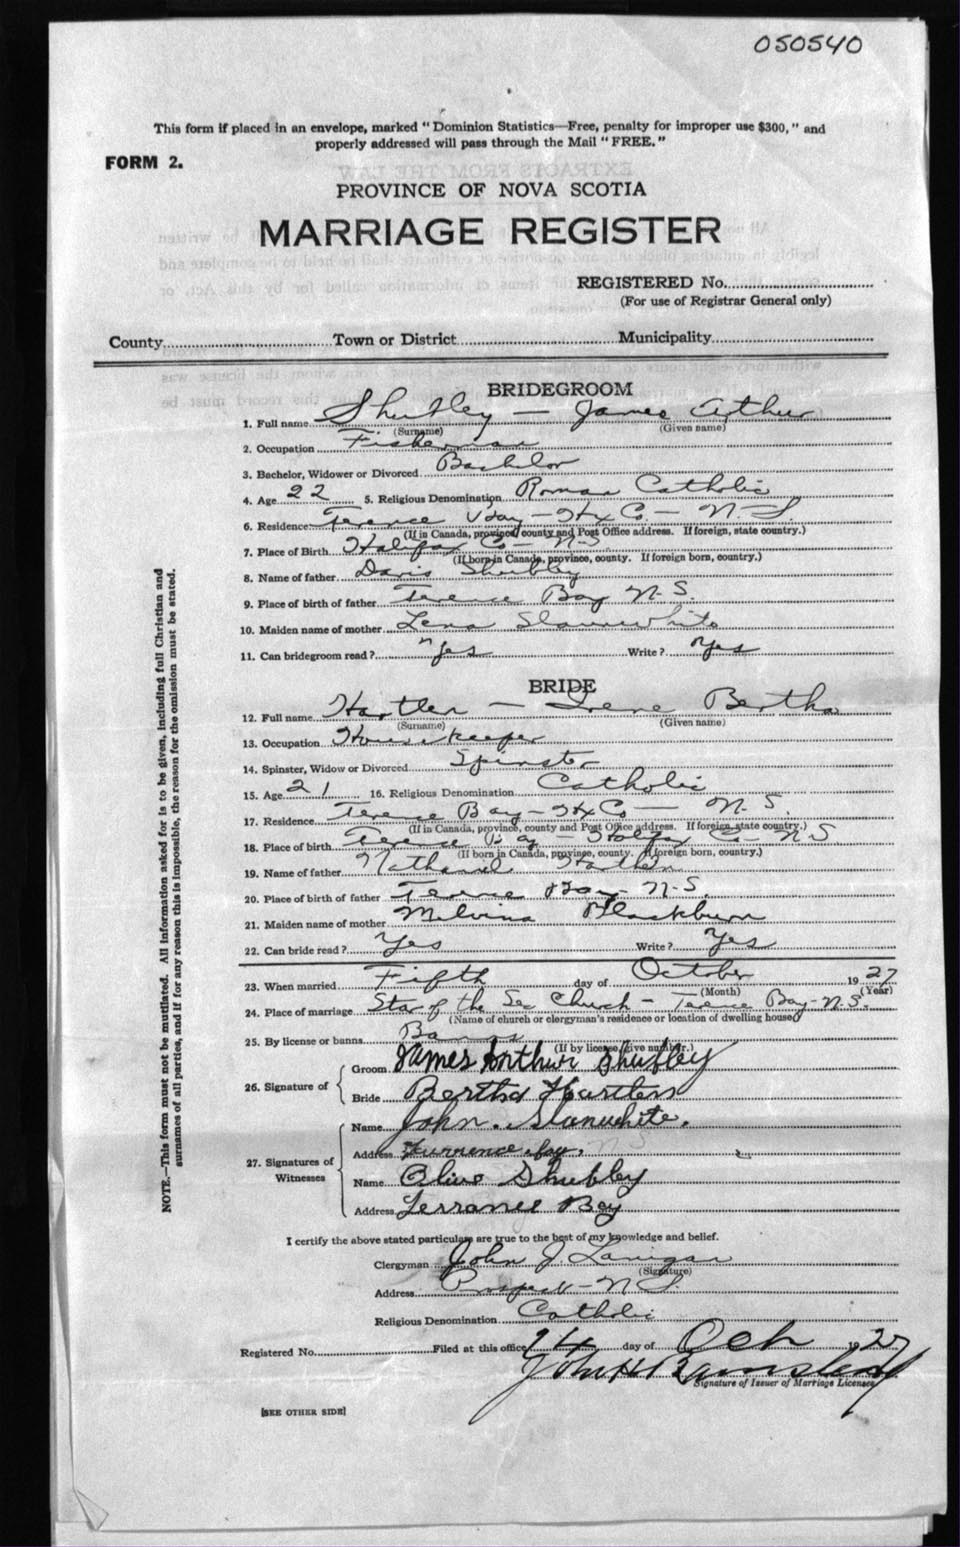 050540
This form if placed in an envelope, marked "Dominion Statistics—Free, penalty for improper use $300," and
properly addressed will pass through the Mail "FREE."
FORM 2.
PROVINCE OF NOVA SCOTIA
MARRIAGE REGISTER
REGISTERED No.
(For use of Registrar General only)
County Town or District Municipality
BRIDEGROOM
1. Full name Shubley — James Arthur
(Surname) (Given name)
2. Occupation Fisherman
3. Bachelor, Widower or Divorced Bachelor
4. Age 22 5. Religious Denomination Roman Catholic
6. Residence Terence Bay — Hx Co. — N.S.
(If in Canada, province, county and Post Office address. If foreign, state country.)
7. Place of Birth Halifax Co — N.S.
(If born in Canada, province, county. If foreign born, country.)
8. Name of father Davis Shubley
9. Place of birth of father Terence Bay N.S.
10. Maiden name of mother Lena Slaunwhite
11. Can bridegroom read? Yes Write? Yes
BRIDE
12. Full name Hartlen — Irene Bertha
(Surname) (Given name)
13. Occupation Housekeeper
14. Spinster, Widow or Divorced Spinster
15. Age 21 16. Religious Denomination Catholic
17. Residence Terence Bay — Hx Co — N.S.
(If in Canada, province, county and Post Office address. If foreign, state country.)
18. Place of birth Terence Bay — Halifax Co — N.S
(If born in Canada, province, county. If foreign born, country.)
19. Name of father Nathaniel Hartlen
20. Place of birth of father Terence Bay N.S.
21. Maiden name of mother Melvina Blackburn
22. Can bride read? Yes Write? Yes
23. When married Fifth day of October 1927
(Month) (Year)
24. Place of marriage Star of the Sea Church — Terence Bay — N.S.
(Name of church or clergyman's residence or location of dwelling house)
25. By license or banns Banns
(If by license, give number.)
26. Signature of
Groom James Arthur Shubley
Bride Bertha Hartlen
27. Signatures of Witnesses
Name John. Slanwhite.
Address Turrence bay. N S
Name Olive Shubley
Address Terrance Bay
I certify the above stated particulars are true to the best of my knowledge and belief.
Clergyman John J. Lanigan
(Signature)
Address Prospect — N.S.
Religious Denomination Catholic
Registered No. Filed at this office 24 day of Oct 1927
John H Barnstead
Signature of Issuer of Marriage Licenses
[SEE OTHER SIDE]
NOTE.—This form must not be mutilated. All information asked for is to be given, including full Christian and
surnames of all parties, and if for any reason this is impossible, the reason for the omission must be stated.